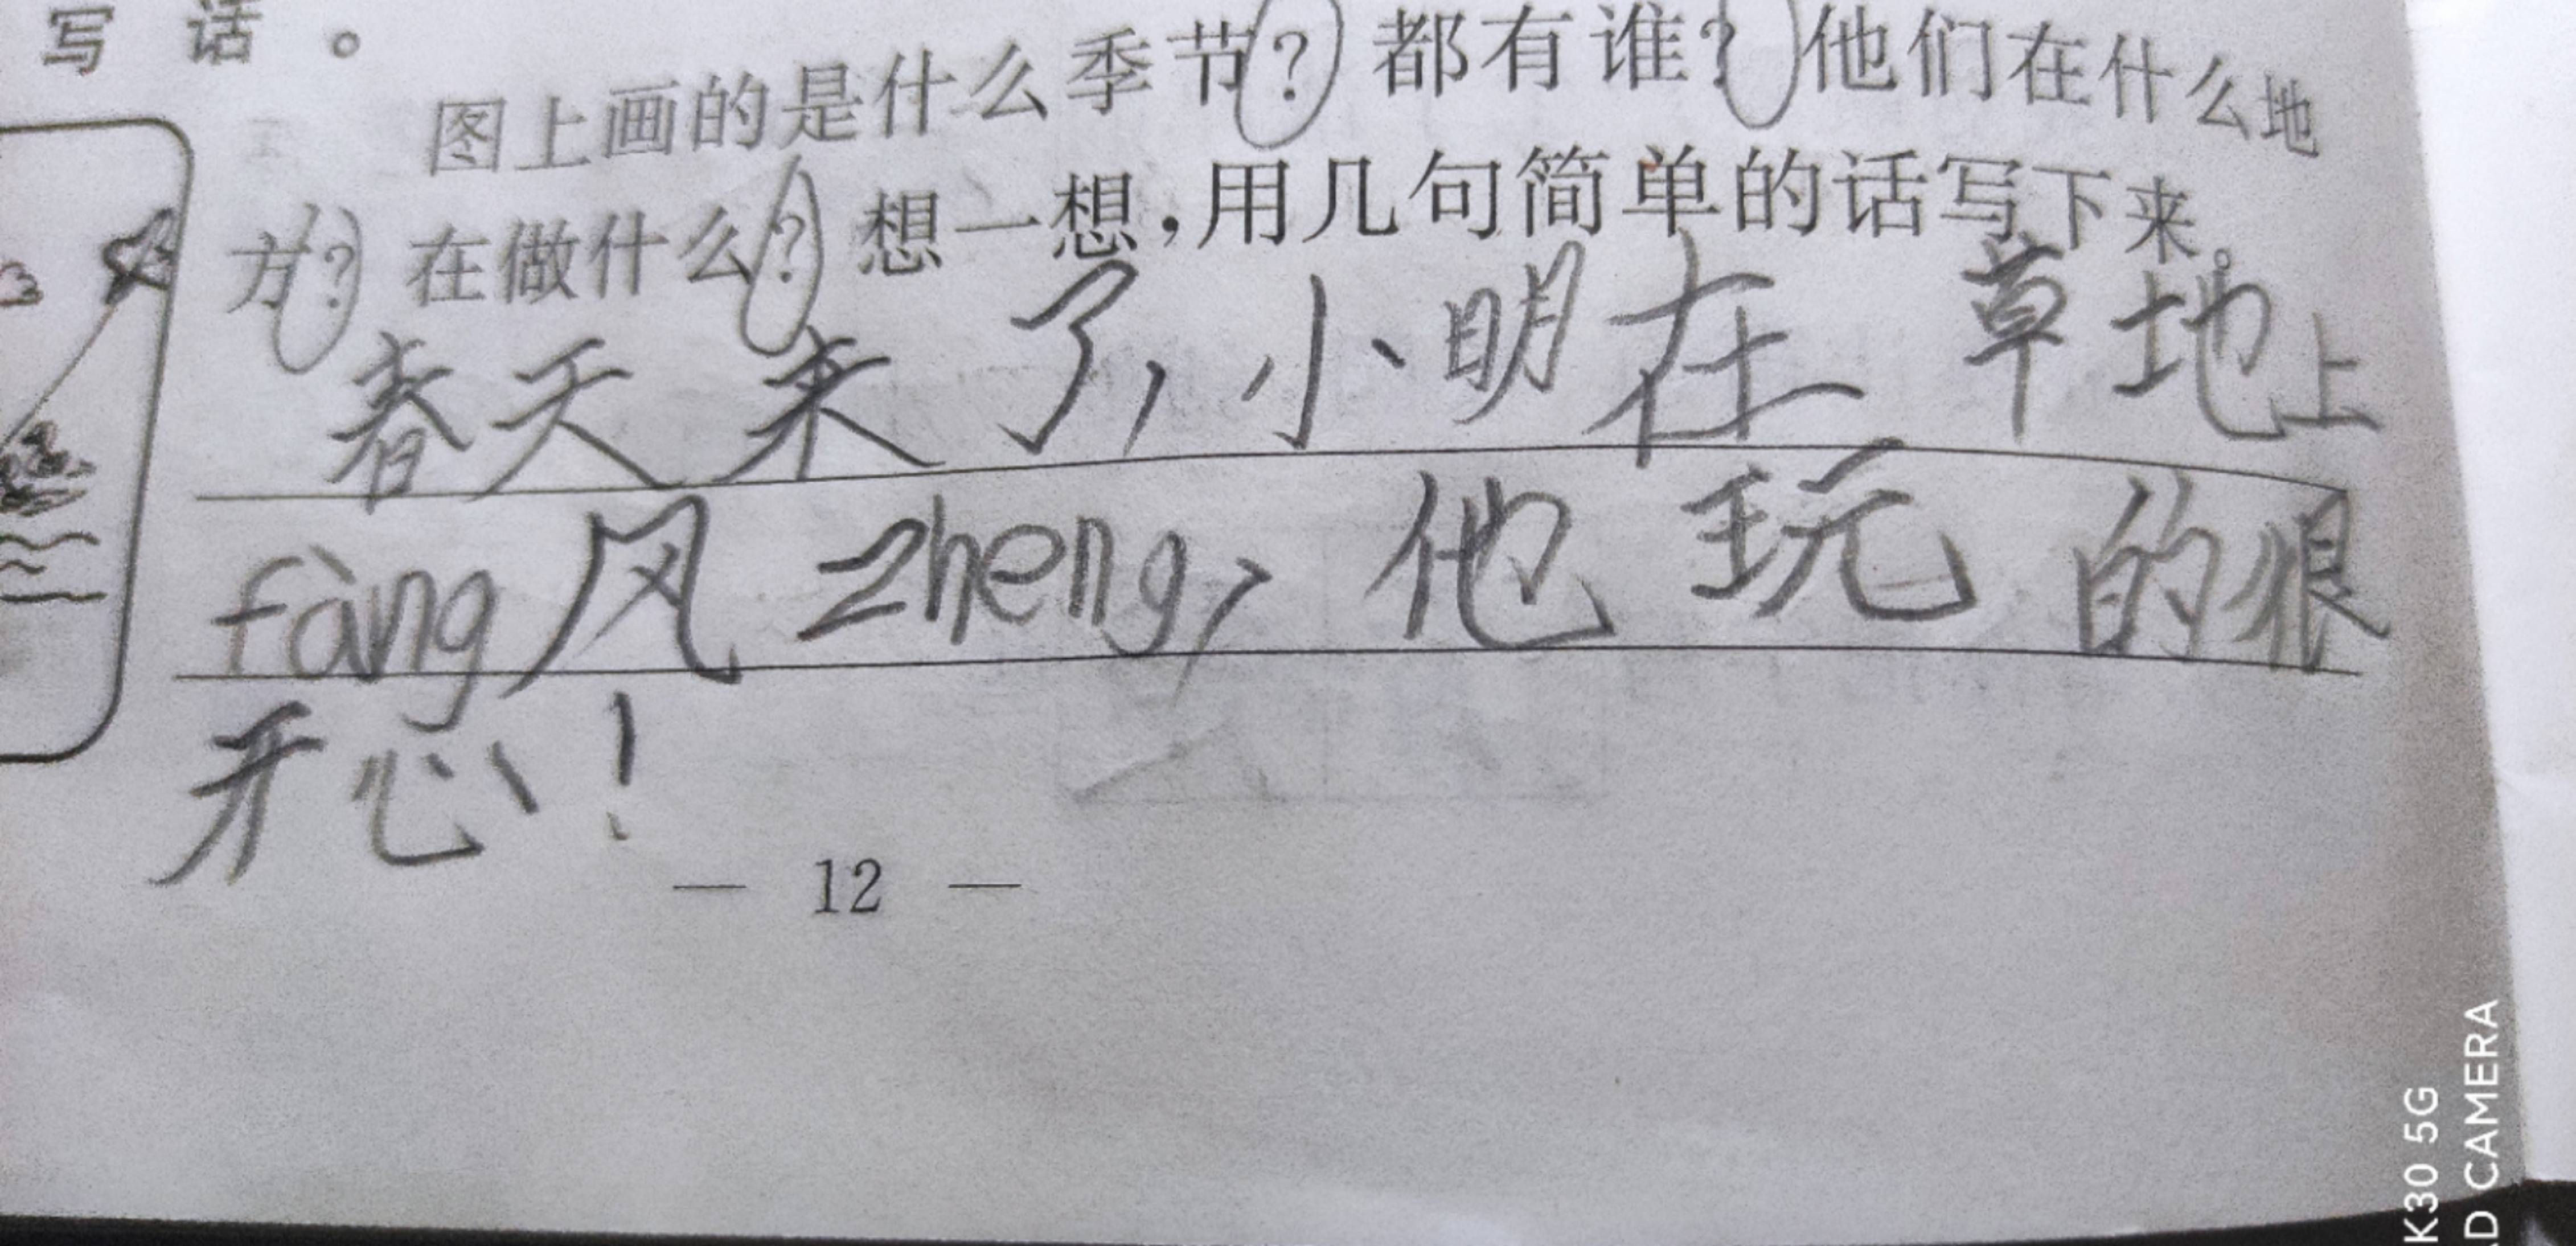 写话。
图上画的是什么季节？都有谁？他们在什么地
方？在做什么？想一想，用几句简单的话写下来。
春天来了，小明在草地上
fàng风zheng，他玩的狠
开心！
— 12 —
K30 5G
D CAMERA